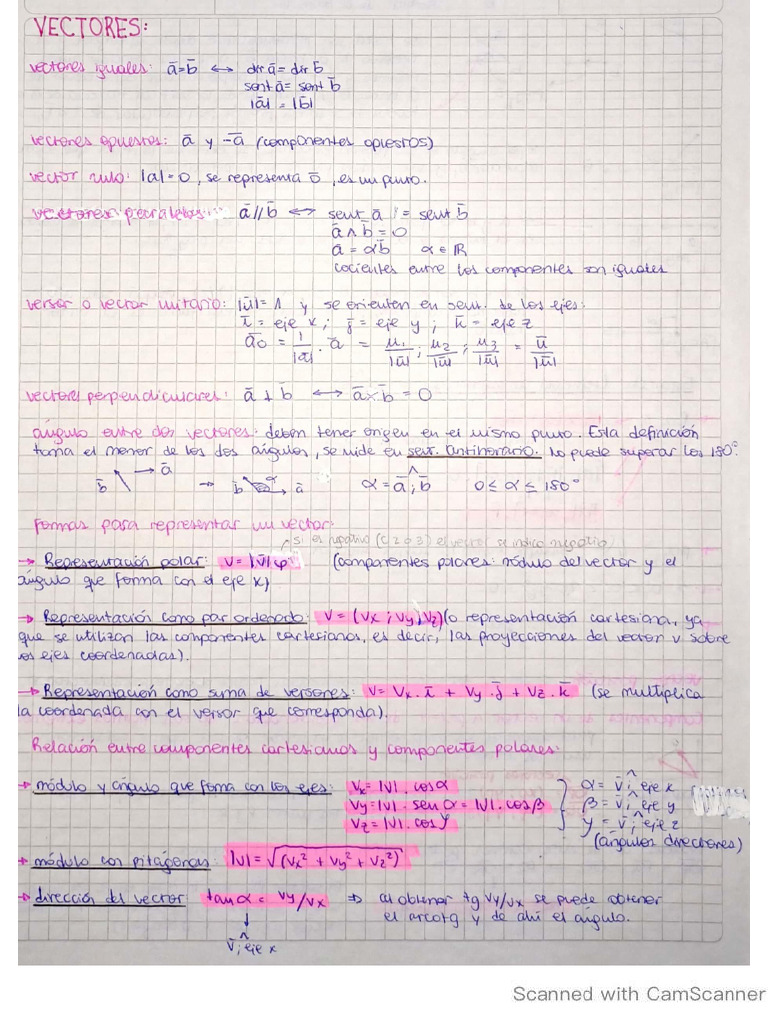 VECTORES:
vectores iguales: ā=b̄ ↔ dir ā = dir b̄
sent ā = sent b̄
|ā| = |b̄|
vectores opuestos: ā y -ā (componentes opuestos)
vector nulo: |a|=0, se representa ō, es un punto.
vectores paralelos: ā//b̄ ↔ sent ā = sent b̄
ā ∧ b̄ = 0
ā = αb̄ α ∈ ℝ
cocientes entre los componentes son iguales
versor o vector unitario: |ū|=1 y se orienten en sent. de los ejes:
ī = eje x ; j̄ = eje y ; k̄ = eje z
ā₀ = 1/|ā| . ā = u₁/|ū| ; u₂/|ū| ; u₃/|ū| = ū/|ū|
vectores perpendiculares: ā ⊥ b̄ ↔ ā × b̄ = 0
ángulo entre dos vectores: deben tener origen en el mismo punto. Esta definición
toma el menor de los dos ángulos, se mide en sent. antihorario. No puede superar los 180°.
b̄ → ā → b̄ α ā α = ā^;b̄ 0 ≤ α ≤ 180°
Formas para representar un vector:
si es negativo (C 2 o 3) el vector se indica negativo
→ Representación polar: V = |v̄| φ (componentes polares: módulo del vector y el
ángulo que forma con el eje x)
→ Representación como par ordenado: V = (Vx ; Vy ; Vz) (o representación cartesiana, ya
que se utilizan las componentes cartesianas, es decir, las proyecciones del vector v sobre
los ejes coordenadas).
→ Representación como suma de versores: V = Vx . ī + Vy . j̄ + Vz . k̄ (se multiplica
la coordenada con el versor que corresponda).
Relación entre componentes cartesianos y componentes polares:
→ módulo y ángulo que forma con los ejes: Vx = |v| . cos α } α = v̄^; eje x
Vy = |v| . sen α = |v| . cos β } β = v̄^; eje y
Vz = |v| . cos γ } γ = v̄^; eje z
(ángulos directores)
→ módulo con pitágoras: |v| = √(Vx² + Vy² + Vz²)
→ dirección del vector: tan α = Vy/Vx ⇒ al obtener tg Vy/Vx se puede obtener
↓ el arcotg y de ahí el ángulo.
v̄^; eje x
Scanned with CamScanner